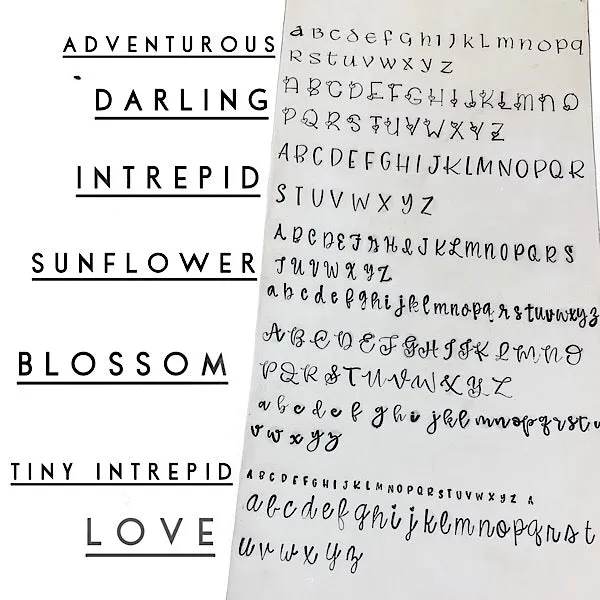 ADVENTUROUS
a B c d e f G h I J k L m n o p q
R s t u v w x y z
DARLING
A B C D E F G H I J K L M N O
P Q R S T U V W X Y Z
INTREPID
A B C D E F G H I J K L M N O P Q R
S T U V W X Y Z
SUNFLOWER
A B C D E F G H I J K L M N O P Q R S
T U V W X Y Z
a b c d e f g h i j k l m n o p q r s t u v w x y z
BLOSSOM
A B C D E F G H I J K L M N O
P Q R S T U V W X Y Z
a b c d e f g h i j k l m n o p q r s t u
v w x y z
TINY INTREPID
A B C D E F G H I J K L M N O P Q R S T U V W X Y Z A
LOVE
a b c d e f g h i j k l m n o p q r s t
u v w x y z